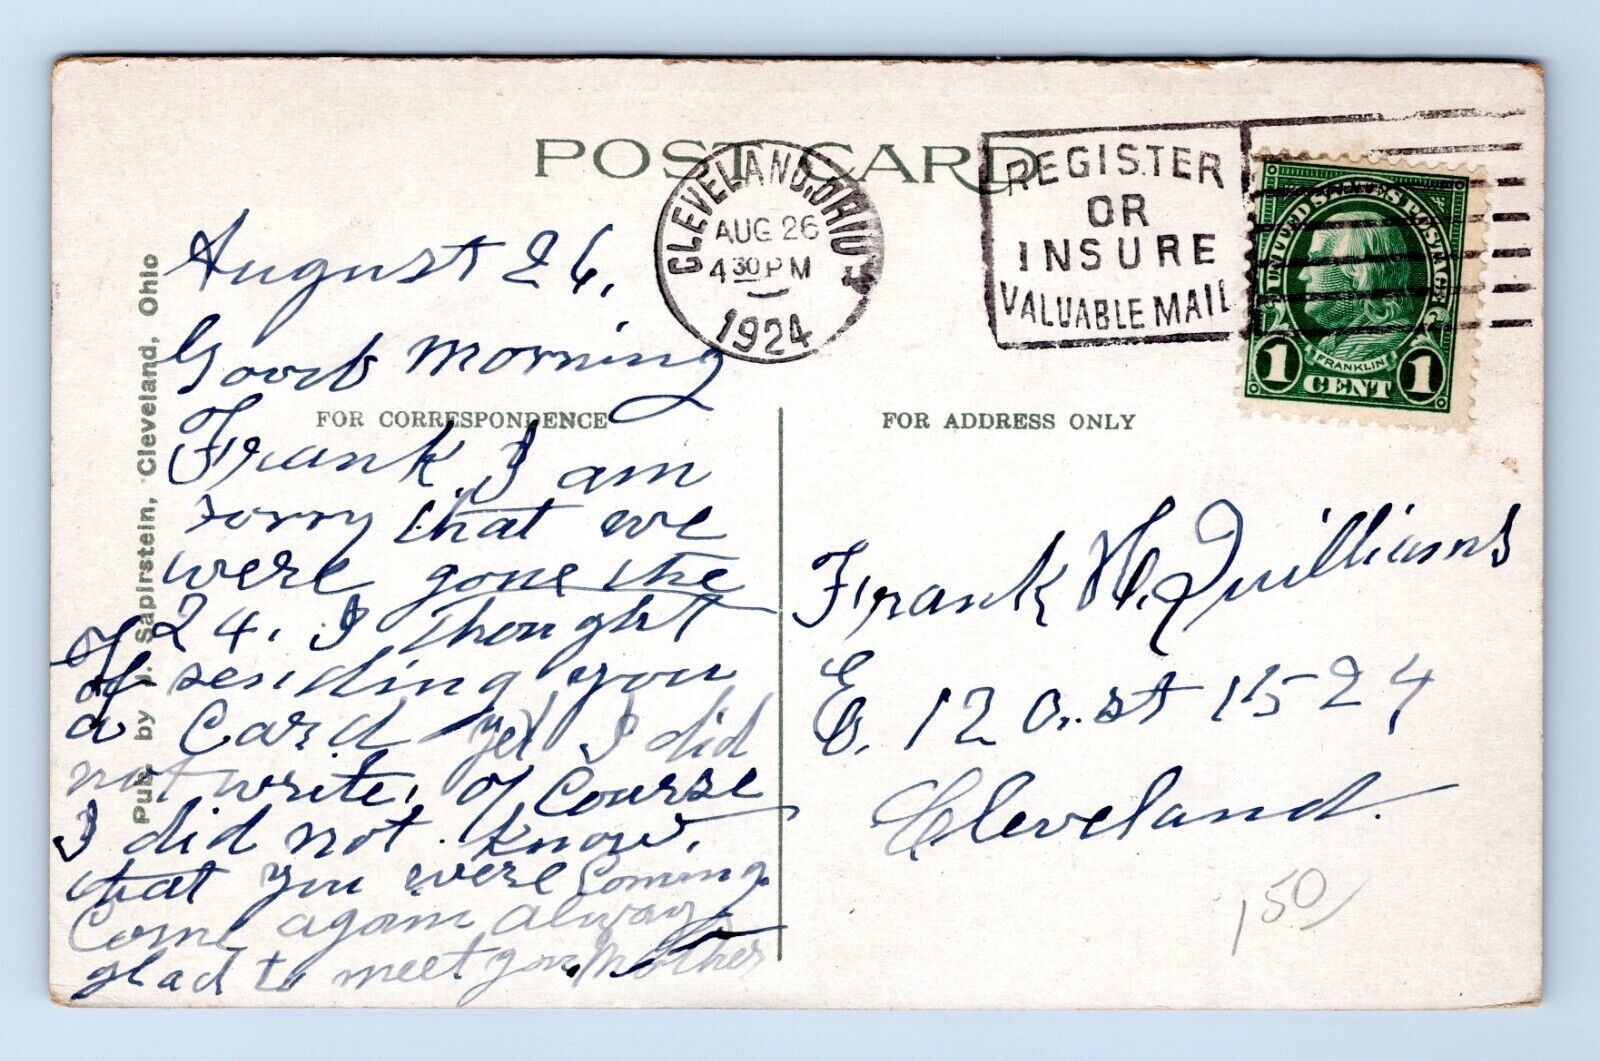 POST CARD
CLEVELAND, OHIO
AUG 26
4 30 PM
1924
REGISTER
OR
INSURE
VALUABLE MAIL
UNITED STATES POSTAGE
FRANKLIN
1 CENT 1
Pub. by J. Sapirstein, Cleveland, Ohio
FOR CORRESPONDENCE
FOR ADDRESS ONLY
August 26,
Good morning
Frank. I am
sorry that we
were gone the
24. I thought
of sending you
a Card yet I did
not write, of Course
I did not know,
that you were Coming.
Come again always
glad to meet you. Mother
Frank H. Quilliams
E. 120. st 1524
Cleveland.
150